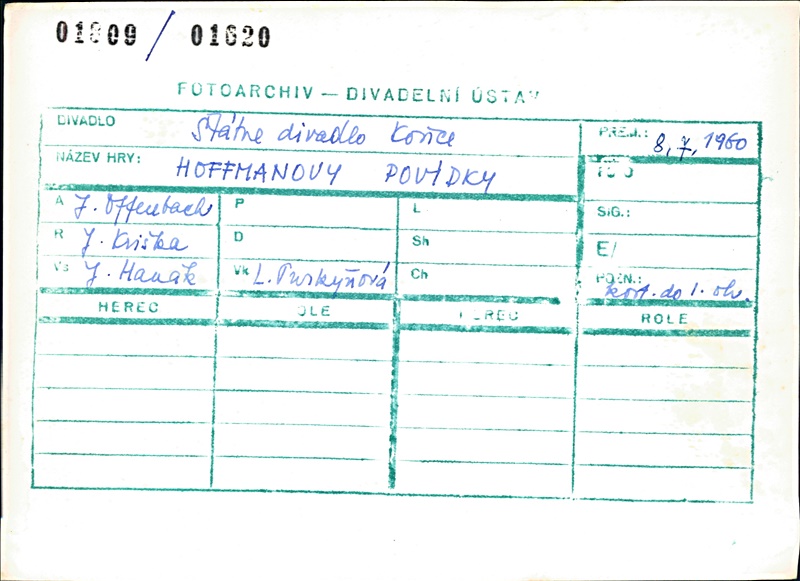 01609 / 01620
FOTOARCHIV — DIVADELNÍ ÚSTAV
DIVADLO Státne divadlo Košice
PREM.: 8. 7. 1960
NÁZEV HRY: HOFFMANOVY POVÍDKY
A J. Offenbach P L
SIG.:
R J. Kriška D Sh
E/
Vs J. Hanák Vk L. Purkyňová Ch
POZN.: kost. do 1. obr.
HEREC ROLE HEREC ROLE